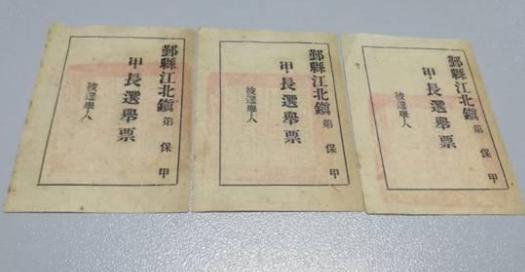 鄞縣江北鎮第 保 甲
甲長選舉票
被選舉人
鄞縣江北鎮第 保 甲
甲長選舉票
被選舉人
鄞縣江北鎮第 保 甲
甲長選舉票
被選舉人